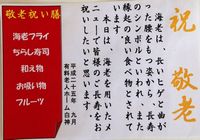 祝 敬老
海老は、長いヒゲと曲が
った腰をもつ姿から、長寿
の縁起の良い食べ物とされ
ています。
本日は、海老を用いたメ
ニューで皆様のご長寿をお
祝いしたいと思います。
平成二十五年 九月
有料老人ホーム白神
敬老祝い膳
海老フライ
ちらし寿司
和え物
お吸い物
フルーツ